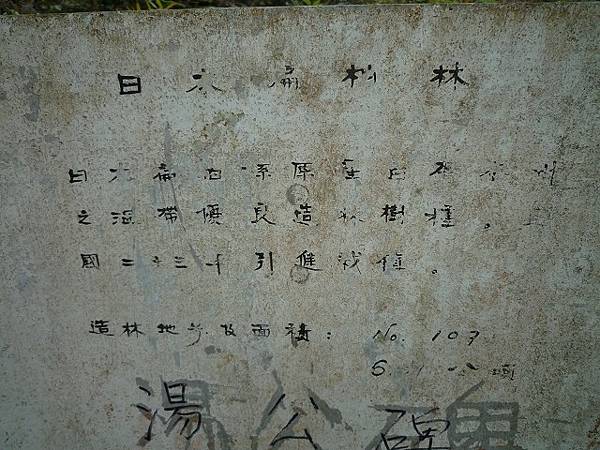 日本扁柏林
日本扁柏係原產日本本州
之溫帶優良造林樹種。民
國二十三年引進栽植。
造林地號及面積: No. 107
6. 1 公頃
湯公碑